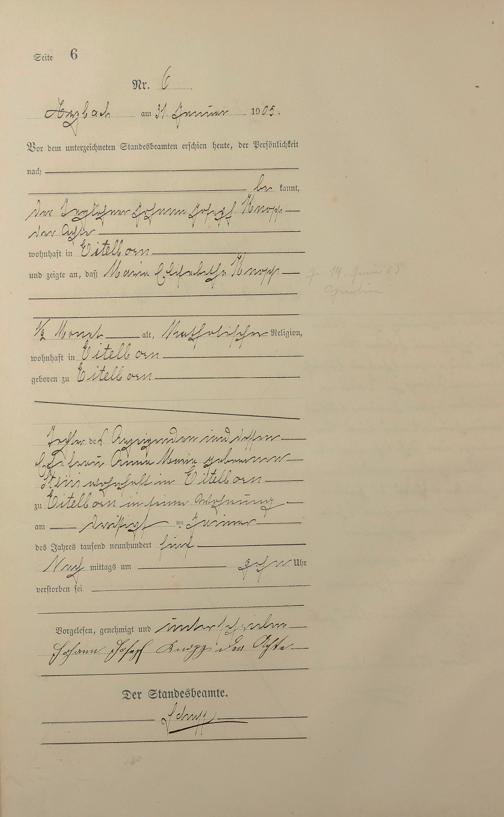 Seite 6
Nr. 6
Arzbach am 31 Januar 1905.
Vor dem unterzeichneten Standesbeamten erschien heute, der Persönlichkeit
nach
be kannt,
der Taglöhner Johann Josef Knopp
der Achte
wohnhaft in Eitelborn
und zeigte an, daß Maria Elisabetha Knopp
1/2 Monat alt, Katholischer Religion,
wohnhaft in Eitelborn
geboren zu Eitelborn
Tochter des Anzeigenden und dessen
Ehefrau Anna Maria geborenen
Stein wohnhaft in Eitelborn
zu Eitelborn in seiner Wohnung
am dreißigsten Januar
des Jahres tausend neunhundert fünf
Nach mittags um zehn Uhr
verstorben sei
Vorgelesen, genehmigt und unterschrieben
Johann Josef Knopp der Achte
Der Standesbeamte.